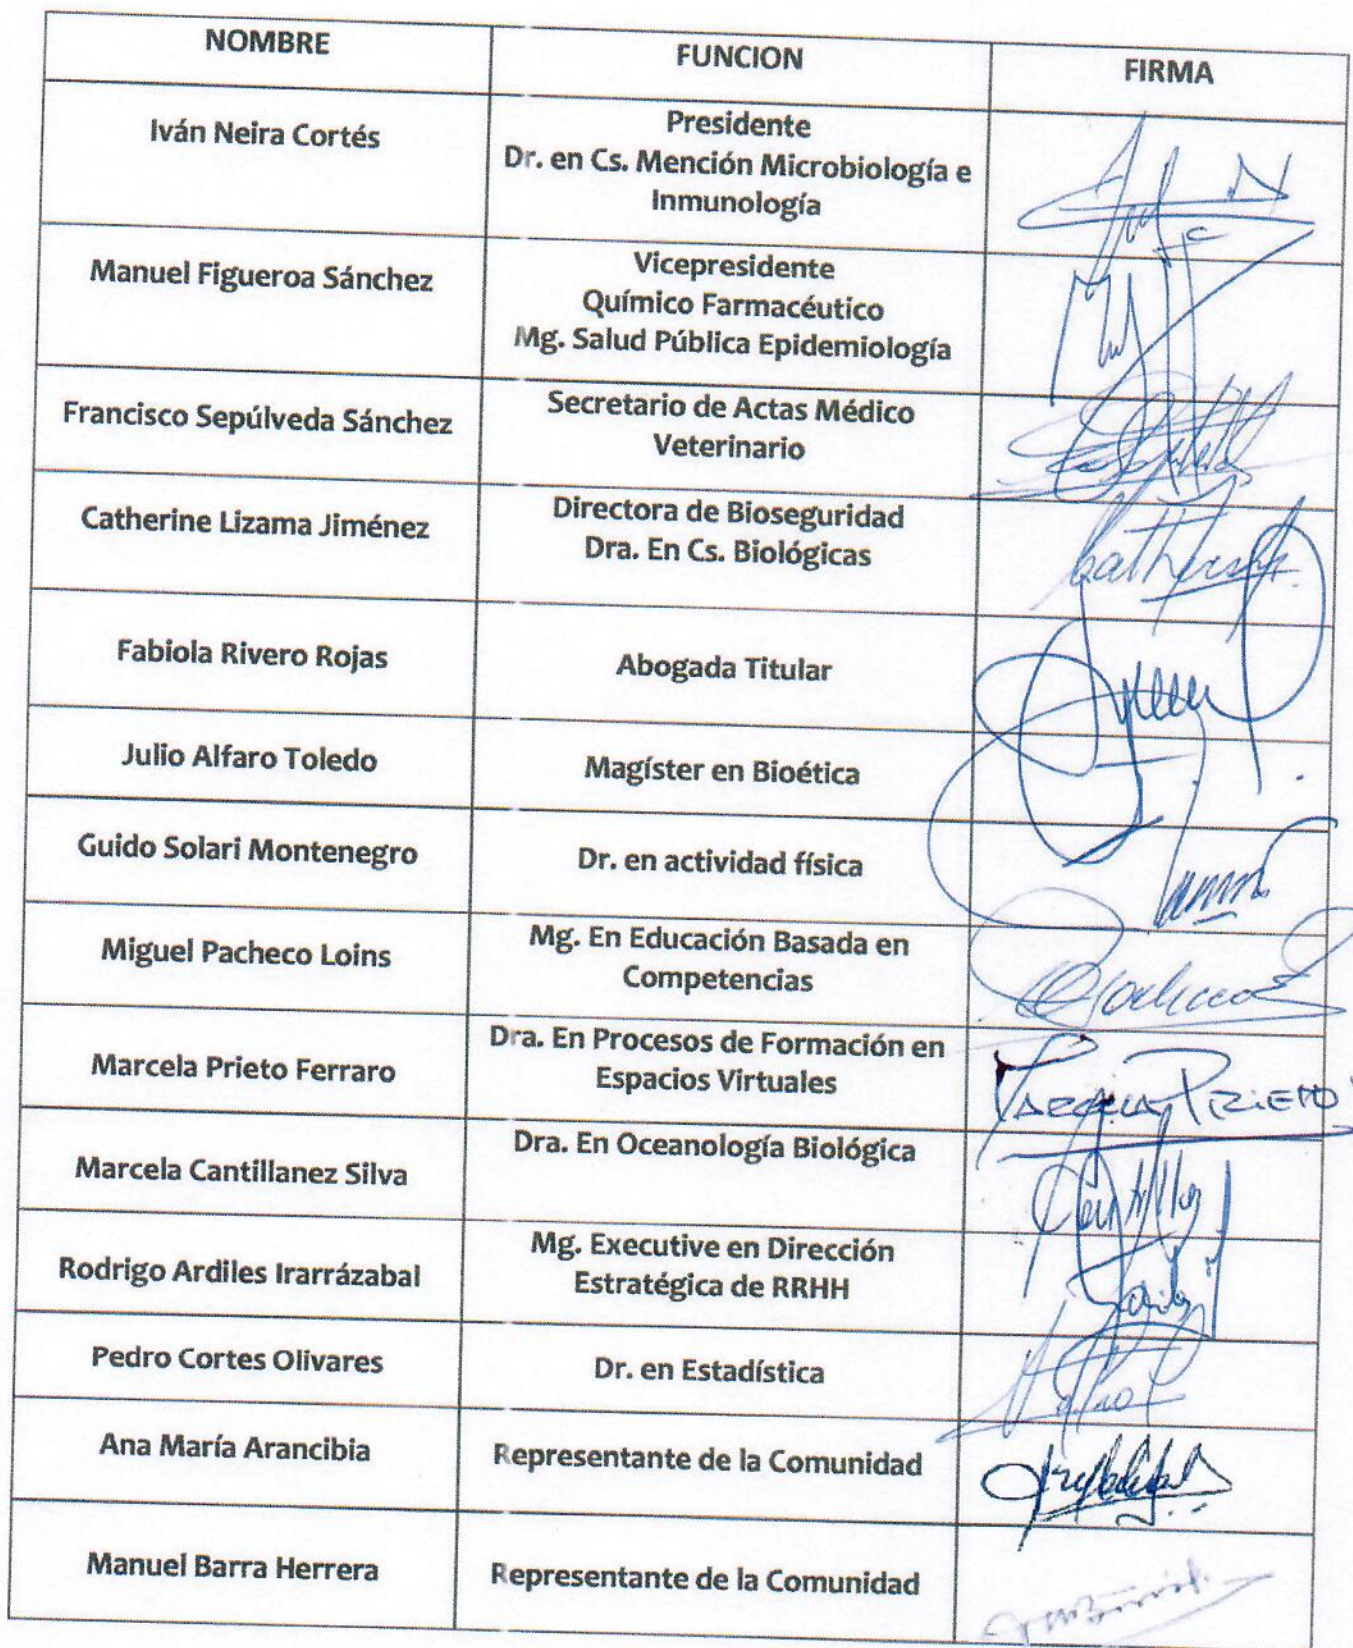 NOMBRE FUNCION FIRMA
Iván Neira Cortés
Presidente
Dr. en Cs. Mención Microbiología e
Inmunología
Manuel Figueroa Sánchez
Vicepresidente
Químico Farmacéutico
Mg. Salud Pública Epidemiología
Francisco Sepúlveda Sánchez
Secretario de Actas Médico
Veterinario
Catherine Lizama Jiménez
Directora de Bioseguridad
Dra. En Cs. Biológicas
Fabiola Rivero Rojas
Abogada Titular
Julio Alfaro Toledo
Magíster en Bioética
Guido Solari Montenegro
Dr. en actividad física
Miguel Pacheco Loins
Mg. En Educación Basada en
Competencias
Marcela Prieto Ferraro
Dra. En Procesos de Formación en
Espacios Virtuales
Marcela Prieto
Marcela Cantillanez Silva
Dra. En Oceanología Biológica
Rodrigo Ardiles Irarrázabal
Mg. Executive en Dirección
Estratégica de RRHH
Pedro Cortes Olivares
Dr. en Estadística
Ana María Arancibia
Representante de la Comunidad
Manuel Barra Herrera
Representante de la Comunidad